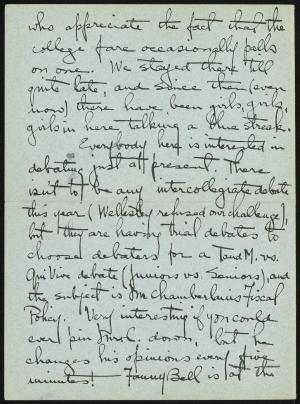 who appreciate the fact that the
college fare occasionally palls
on one. We stayed there till
quite late, and since then (even
now) there have been girls, girls,
girls in here talking a blue streak.
Everybody here is interested in
debating just at present. There
isn't to be any intercollegiate debate
this year (Wellesley refused our challenge),
but they are having trial debates to
choose debaters for a T and M. vs.
Qui Vive debate (Juniors vs. Seniors), and
the subject is Mr Chamberlain's Fiscal
Policy. Very interesting if you could
ever pin Mr. C. down, but he
changes his opinions every five
minutes! Fanny Bell is at the